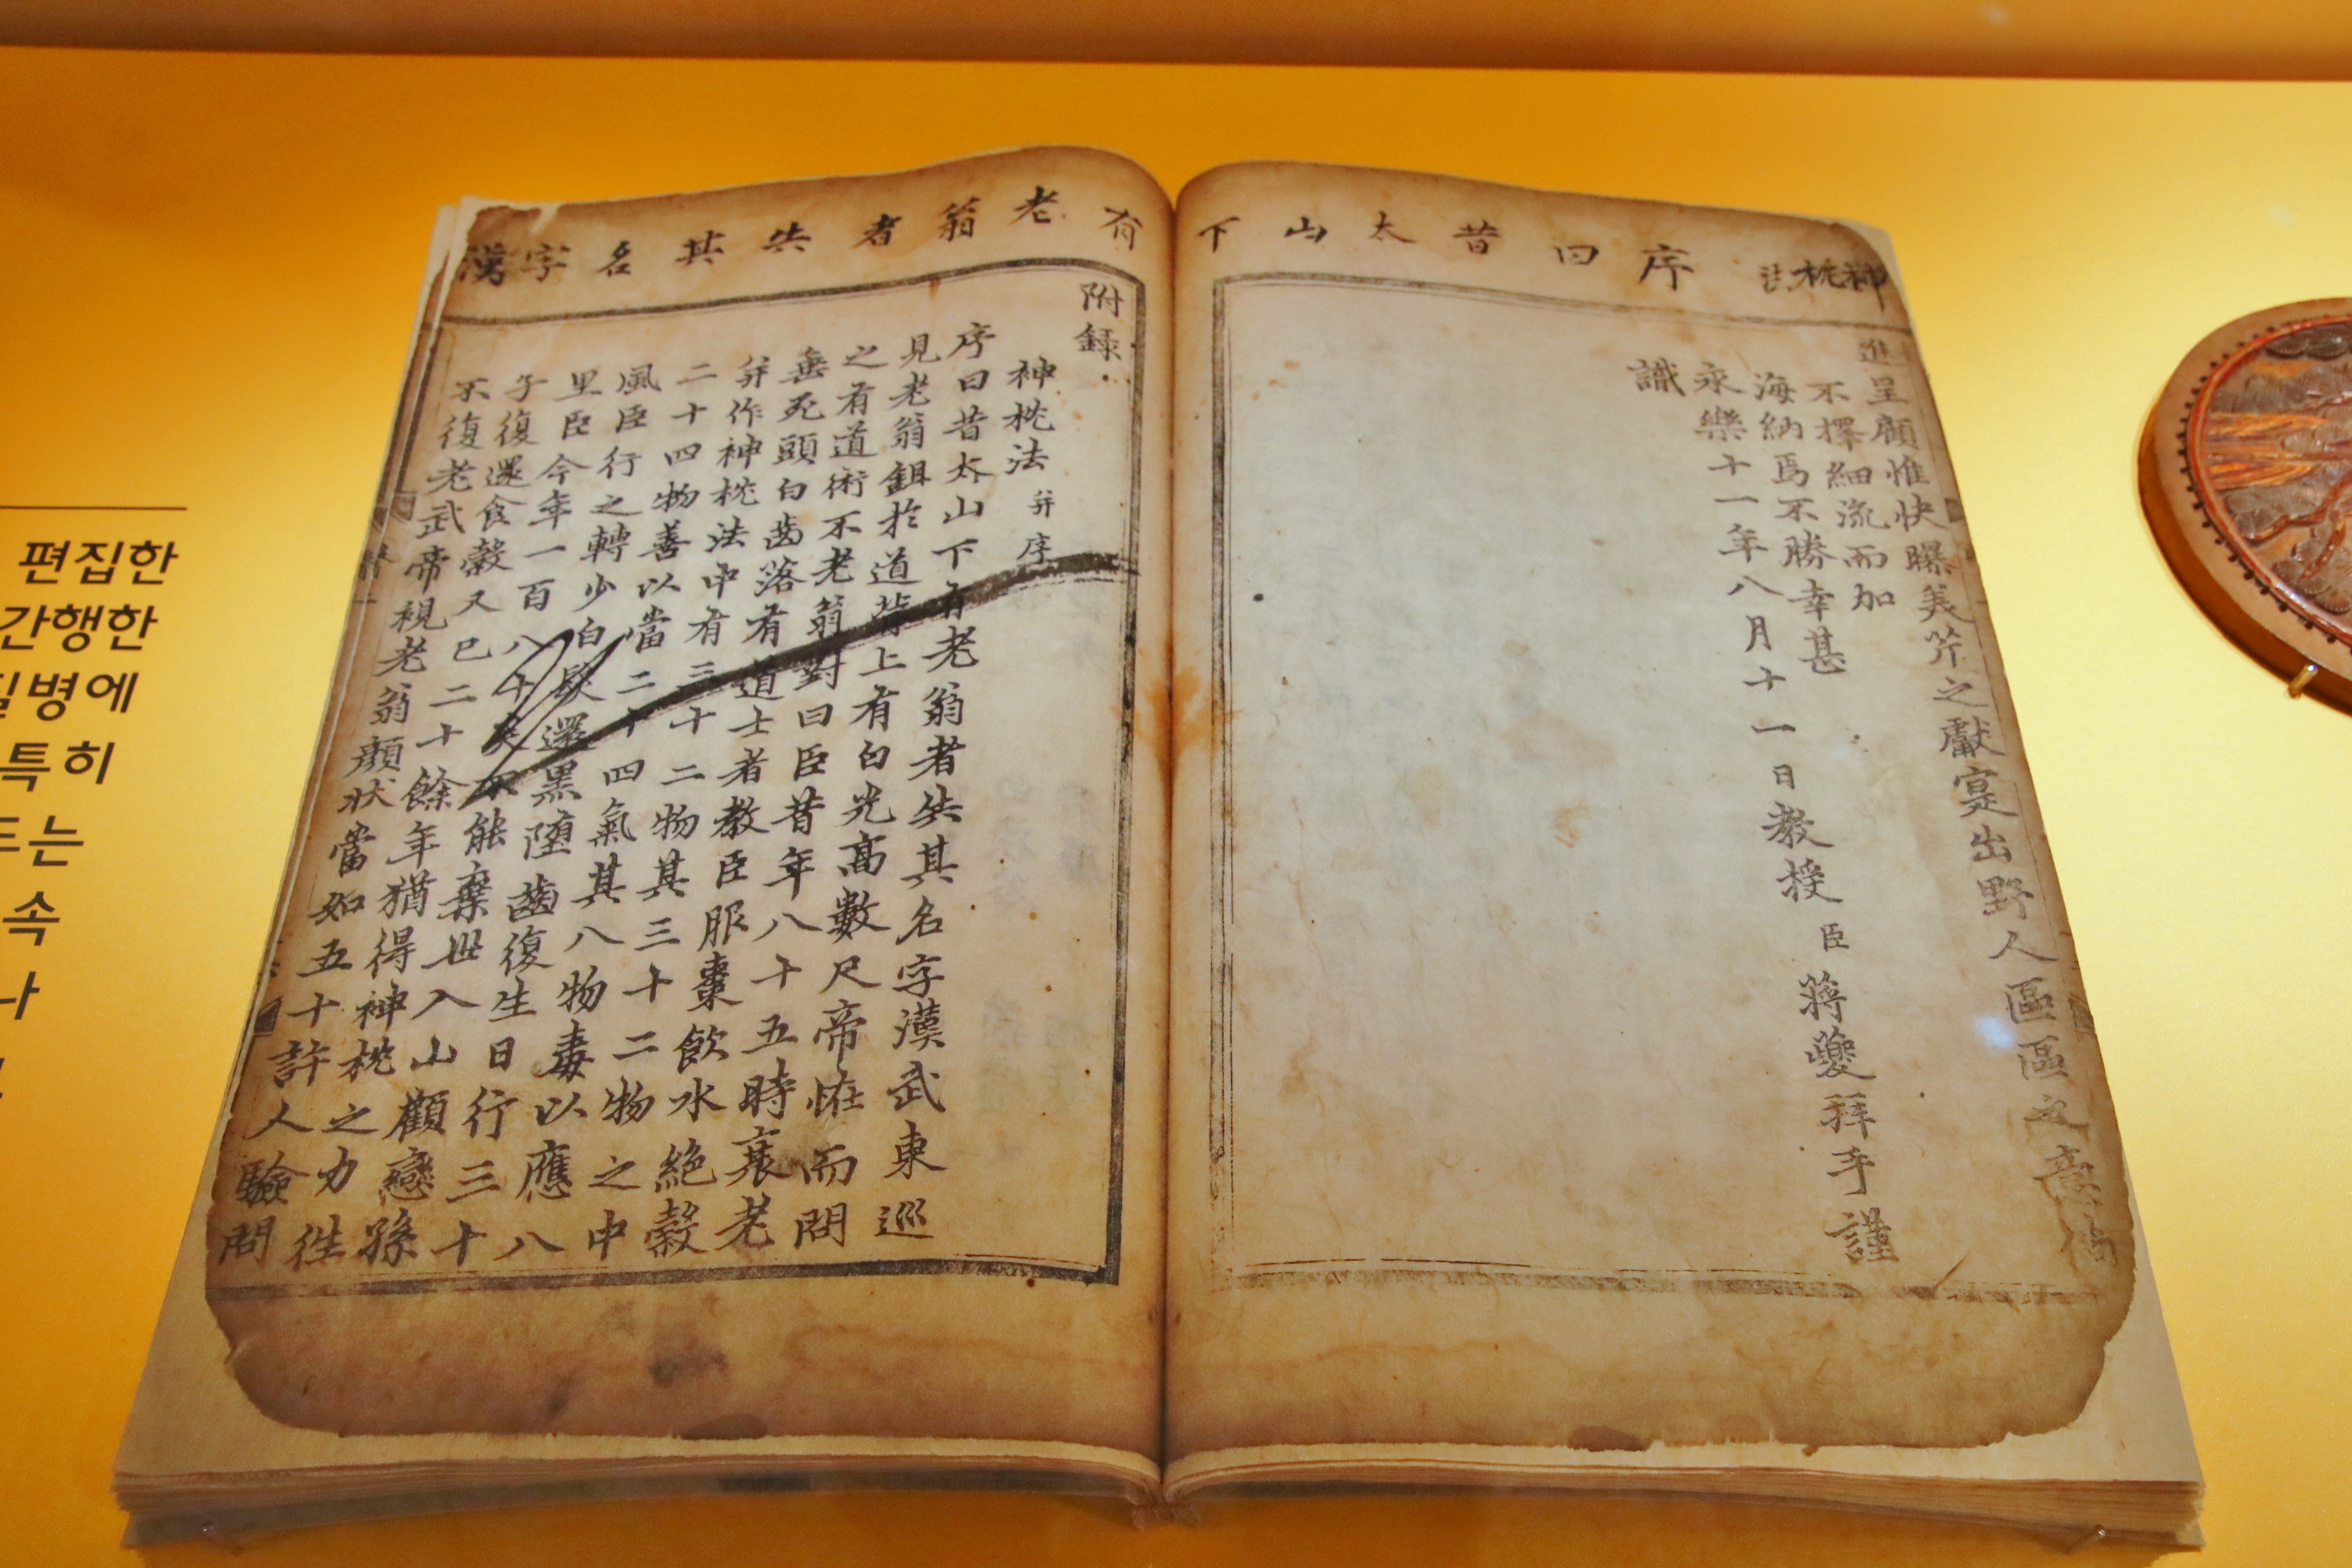 神枕法 序曰昔太山下
進呈顧惟快曝美芹之獻寔出野人區區之意倘
不擇細流而加
海納焉不勝幸甚
永樂十一年八月十一日教授臣蔣夔拜手謹
識
有老翁者失其名字漢
附録
神枕法 并序
序曰昔太山下有老翁者失其名字漢武東巡
見老翁鉏於道背上有白光高數尺帝恠而問
之有道術不老翁對曰臣昔年八十五時衰老
垂死頭白齒落有道士者教臣服棗飲水絶穀
并作神枕法中有三十二物其三十二物之中
二十四物善以當二十四氣其八物毒以應八
風臣行之轉少白髮還黑墮齒復生日行三十
里臣今年一百八十矣不能棄世入山顧戀孫
子復還食穀又已二十餘年猶得神枕之力往
不復老武帝視老翁顏狀當如五十許人驗問
편집한
간행한
질병에
특히
는
속
나